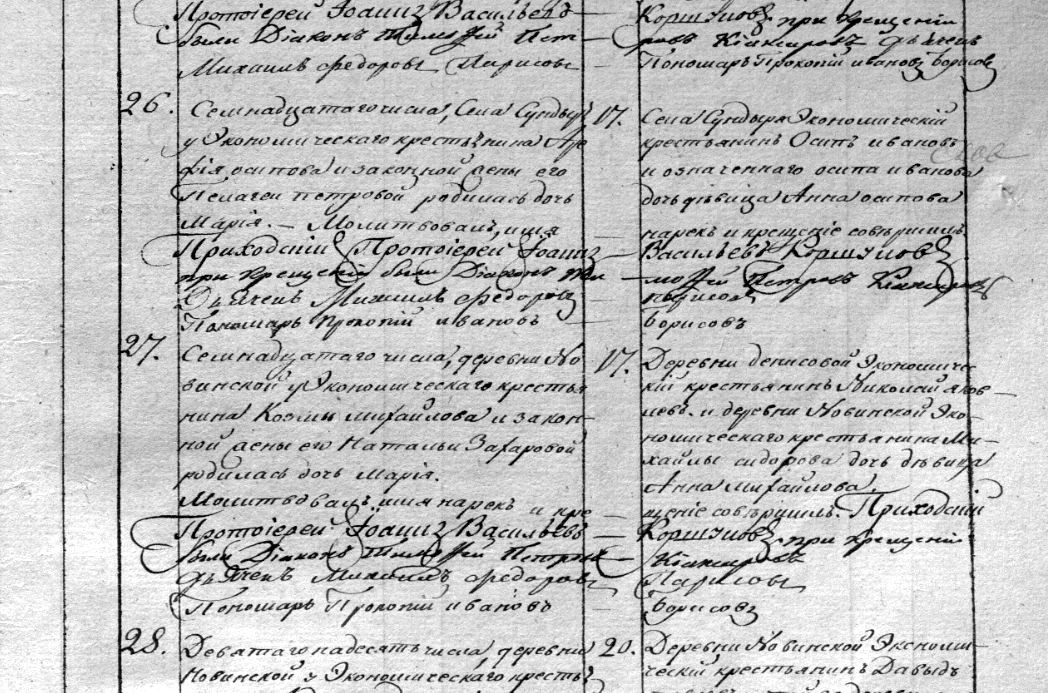 Протоіерей Іоаннъ Васильевъ
Коршуновъ, при крещеніи
были Діаконъ Тимоѳей Пет-
ровъ Кіапировъ дьячекъ
Михаилъ Федоровъ Ларисовъ
Пономарь Прокопій Ивановъ Борисовъ
26.
Семнадцатаго числа, Села Сундыря
у Экономическаго крестьянина
осипова и законной жены его
Пелагеи петровой родилась дочь
Марія. — Молитвовалъ, имя
Приходскій Протоіерей Іоаннъ
при крещеніи были Діаконъ Ти-
Дьячекъ Михаилъ Федоровъ
Пономарь Прокопій ивановъ
17.
Села Сундыря Экономическій
крестьянинъ Осипъ ивановъ
и означеннаго осипа иванова
дочь дѣвица Анна осипова
нарекъ и крещеніе совѣршилъ
Васильевъ Коршуновъ
моѳей Петровъ
Ларисовъ
Борисовъ
27.
Семнадцатаго числа, деревни Но-
винской у Экономическаго крестья
нина Козмы михайлова и закон-
ной жены его Натальи Захаровой
родилась дочь Марія.
Молитвовалъ, имя нарекъ и кре-
Протоіерей Іоаннъ Васильевъ
были Діаконъ Тимоѳей Петровъ
дьячекъ Михаилъ Федоровъ
Пономарь Прокопій ивановъ
17.
Деревни денисовой Экономичес-
кій крестьянинъ Николай яков-
левъ. и деревни Новинской Эко-
номическаго крестьянина Ми-
хайлы сидорова дочь дѣвица
Анна михайлова
щеніе совѣршилъ. Приходскій
Коршуновъ, при крещеніи
Ларисовъ
Борисовъ
28.
Девятагонадесять числа деревни
Новинской у Экономическаго кресть
20.
Деревни Новинской Экономи-
ческій крестьянинъ Давыдъ